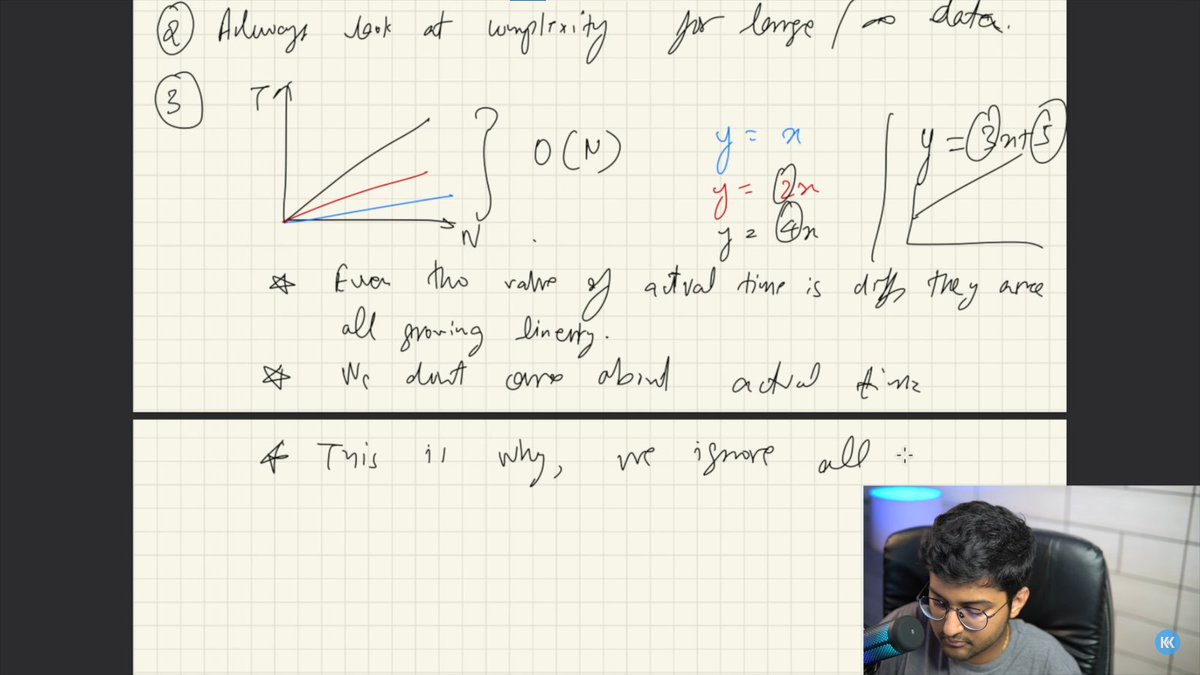 ② Always look at complexity for large / ∞ data.
③ T
N
O(N)
y = x
y = 2x
y = 4x
y = 3x+5
☆ Even tho value of actual time is diff they are
all growing linerly.
☆ We dont care about actual time
☆ This is why, we ignore all
KK